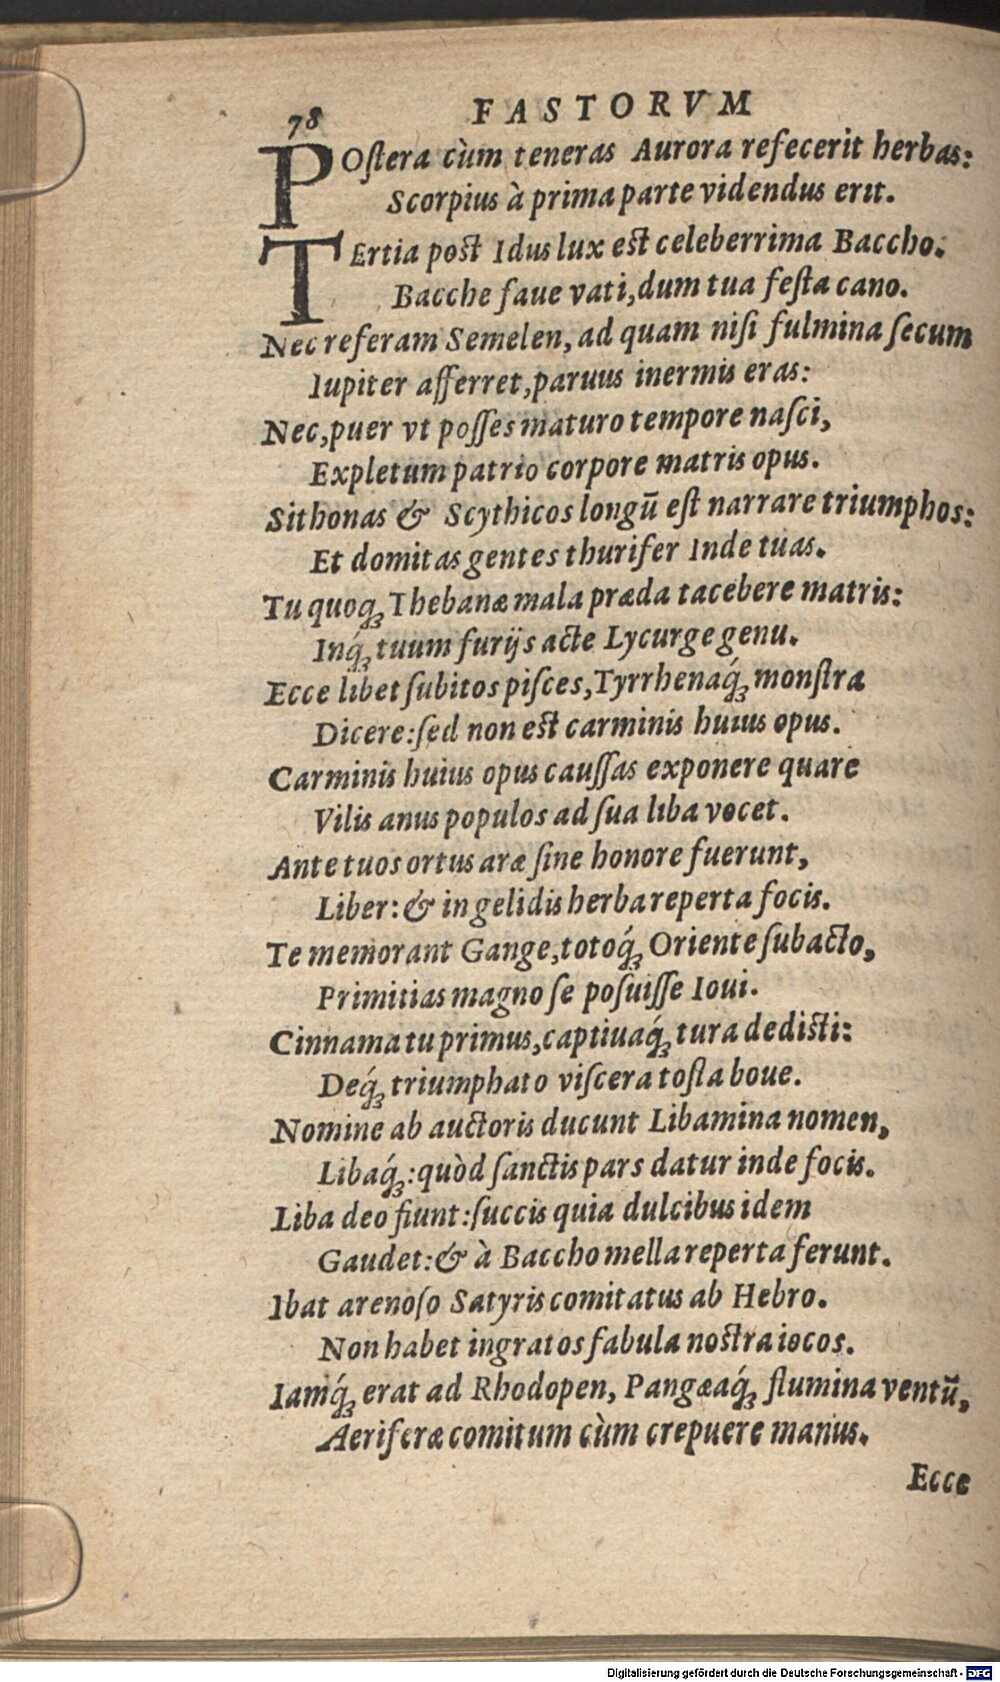 78 FASTORVM
POſtera cùm teneras Aurora refecerit herbas:
Scorpius à prima parte videndus erit.
TErtia post Idus lux est celeberrima Baccho.
Bacche faue vati, dum tua feſta cano.
Nec referam Semelen, ad quam niſi fulmina ſecum
Iupiter afferret, paruus inermis eras:
Nec, puer vt poſſes maturo tempore naſci,
Expletum patrio corpore matris opus.
Sithonas & Scythicos longū eſt narrare triumphos:
Et domitas gentes thurifer Inde tuas.
Tu quoqꝫ Thebanæ mala præda tacebere matris:
Inq́ꝫ tuum furijs acte Lycurge genu.
Ecce libet ſubitos piſces, Tyrrhenaq́ꝫ monſtra
Dicere: ſed non est carminis huius opus.
Carminis huius opus cauſſas exponere quare
Vilis anus populos ad ſua liba vocet.
Ante tuos ortus aræ ſine honore fuerunt,
Liber: & in gelidis herba reperta focis.
Te memorant Gange, totoq́ꝫ Oriente ſubacto,
Primitias magno ſe poſuiſſe Ioui.
Cinnama tu primus, captiuaq́ꝫ tura dedisti:
Deq́ꝫ triumphato viſcera toſta boue.
Nomine ab auctoris ducunt Libamina nomen,
Libaq́ꝫ: quòd ſanctis pars datur inde focis.
Liba deo fiunt: ſuccis quia dulcibus idem
Gaudet: & à Baccho mella reperta ferunt.
Ibat arenoſo Satyris comitatus ab Hebro.
Non habet ingratos fabula nostra iocos.
Iamq́ꝫ erat ad Rhodopen, Pangæaq́ꝫ flumina ventū,
Aeriferæ comitum cùm crepuere manus.
Ecce
Digitalisierung gefördert durch die Deutsche Forschungsgemeinschaft - DFG